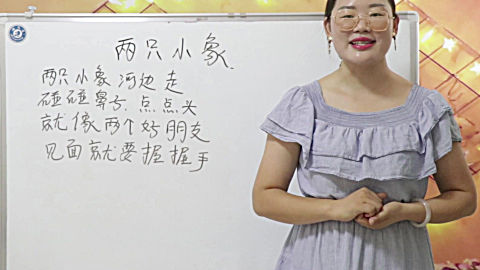 两只小象.
两只小象河边走
碰碰鼻子 点点头
就像两个好朋友
见面就要握握手